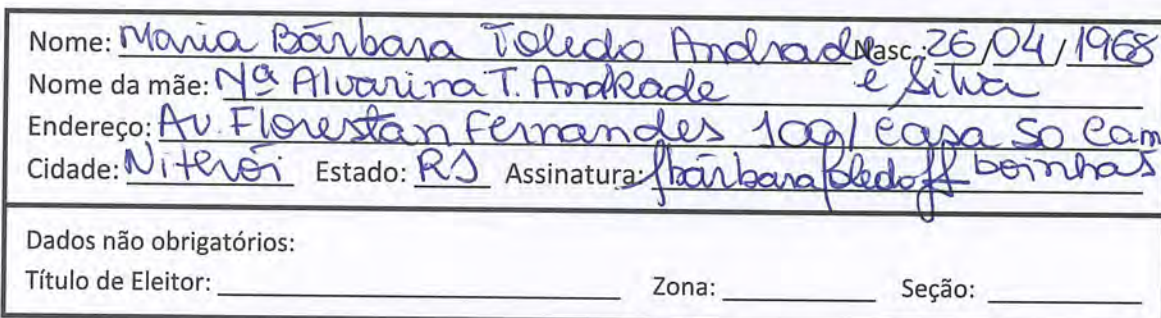 Nome: Maria Bárbara Toledo Andrade Nasc.: 26/04/1968
Nome da mãe: Mª Alvarina T. Andrade e Silva
Endereço: Av. Florestan Fernandes 100/ casa 50 Cam
Cidade: Niterói Estado: RJ Assinatura: bárbara toledo boinhas
Dados não obrigatórios:
Título de Eleitor: Zona: Seção: